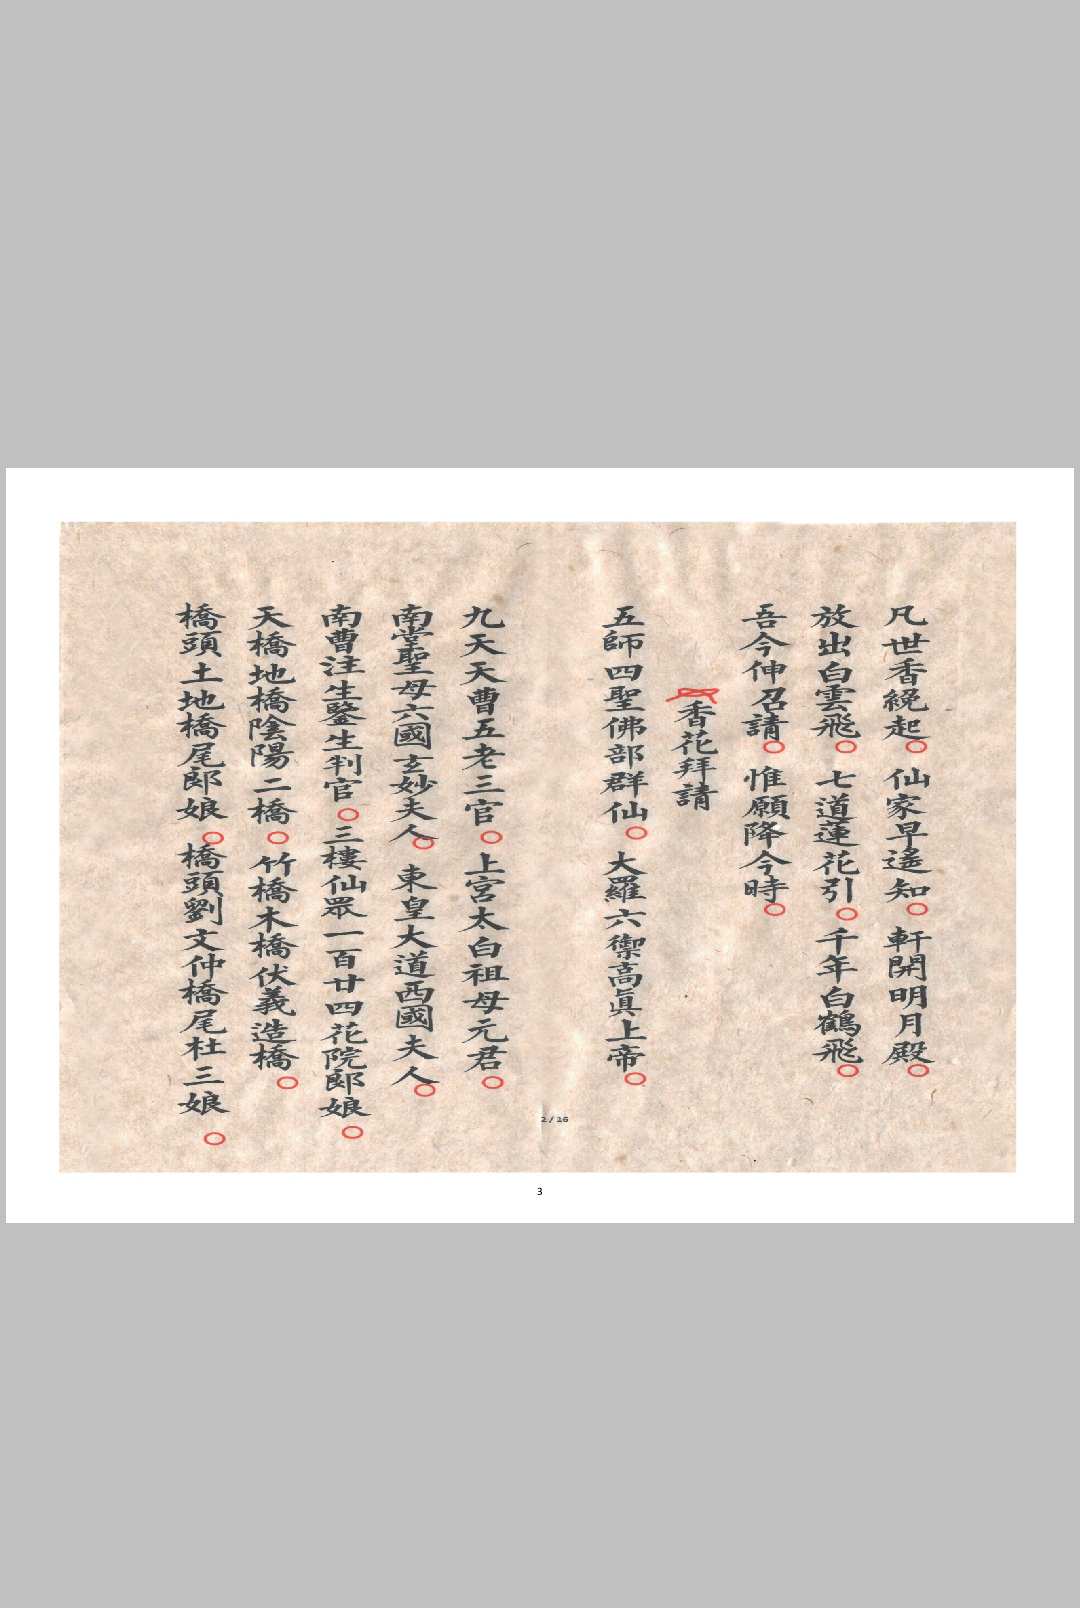 凡世香纔起○仙家早遙知○軒開明月殿○
放出白雲飛○七道蓮花引○千年白鶴飛○
吾今伸召請○惟願降今時○
香花拜請
五師四聖佛部群仙○大羅六禦高眞上帝○
九天天曹五老三官○上宮太白祖母元君○
南堂聖母六國玄妙夫人○東皇大道西國夫人○
南曹注生鑒生判官○三樓仙眾一百廿四花院郎娘○
天橋地橋陰陽二橋○竹橋木橋伏義造橋○
橋頭土地橋尾郎娘○橋頭劉文仲橋尾杜三娘○
2/26
3